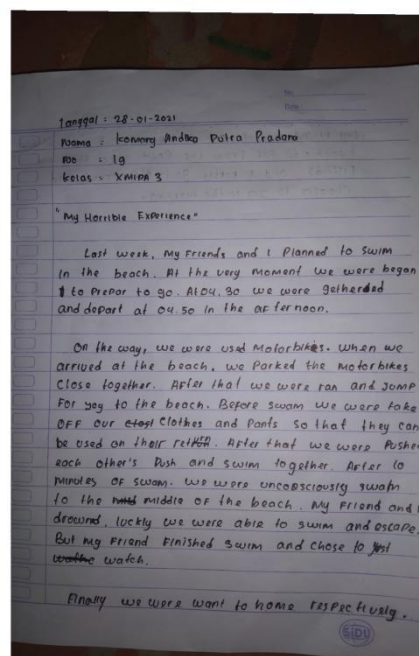 No.
Date
Tanggal : 28-01-2021
Nama : Komang Andika Putra Pradana
No : 19
Kelas : XMIPA 3
"My Horrible Experience"
Last week, My Friends and I Planned to swim
In the beach. At the very moment we were began
to Prepar to go. At 04.30 we were getherded
and depart at 04.50 In the afternoon.
On the way, we were used Motorbikes. When we
arrived at the beach, we Parked the Motorbikes
Close together. After that we were ran and Jump
For joy to the beach. Before swam we were take
OFF our Clothes and Pants so that they can
be used on their return. After that we were Pushed
each other's Push and swim together. After 10
Minutes of swam. we were unconsciously swam
to the middle of the beach. My Friend and I
drownd, luckly we were able to swim and escape.
But my Friend Finished swim and chose to just
watch.
Finally we were want to home respectively.
SIDU